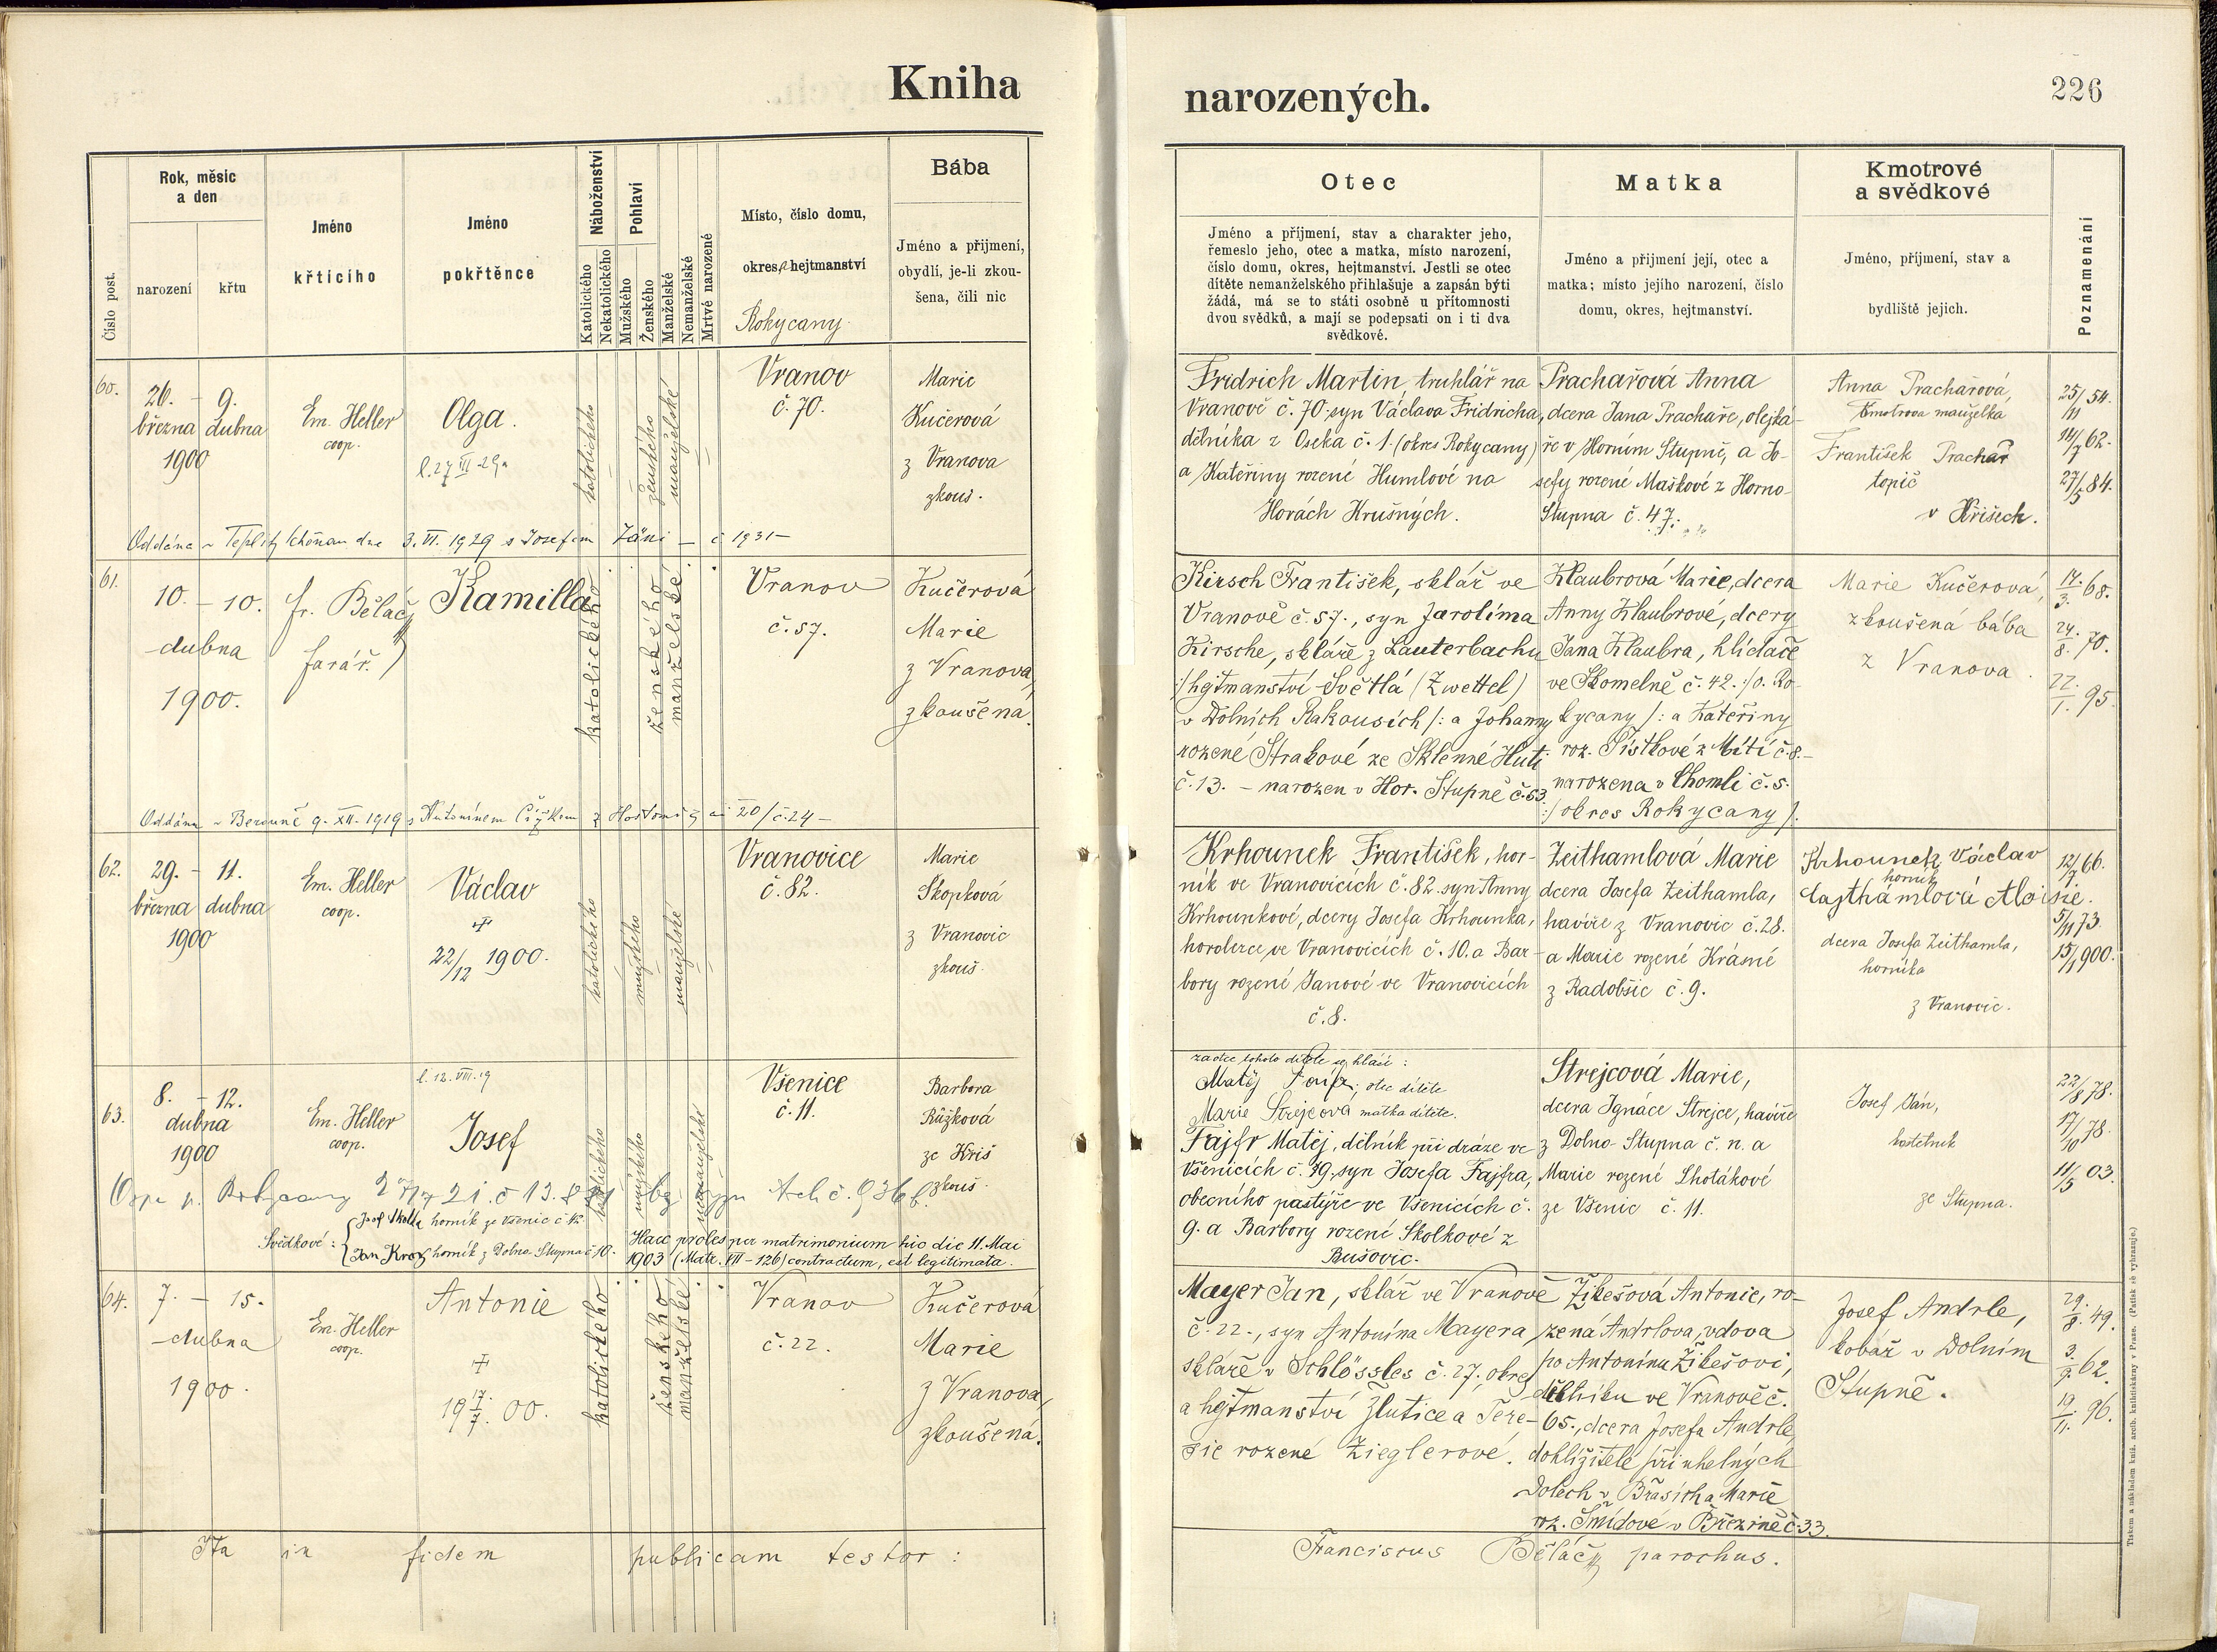 Kniha
Číslo post.
Rok, měsíc
a den
narození
křtu
Jméno
křtícího
Jméno
pokřtěnce
Náboženství
Katolického
Nekatolického
Pohlaví
Mužského
Ženského
Manželské
Nemanželské
Mrtvé narozené
Místo, číslo domu,
okres, hejtmanství
Rokycany
Bába
Jméno a přijmení,
obydlí, je-li zkou-
šena, čili nic
60.
26. - 9.
března dubna
1900
Em. Heller
coop.
Olga.
katolického
ženského
manželské
Vranov
č. 70.
Marie
Kučerová
z Vranova
zkouš.
Oddána v Teplitz Schönau dne 3. VI. 1929 s Josefem č 1931
61.
10. - 10.
dubna
1900.
fr. Běláč
farář.
Kamilla
katolického
ženského
manželské
Vranov
č. 57.
Kučerová
Marie
z Vranova,
zkoušena.
Oddána v Berouně 9. XII. 1919 s Antonínem Čížkem z
62.
29. - 11.
března dubna
1900
Em. Heller
coop.
Václav
22/12 1900.
katolického
mužského
manželské
Vranovice
č. 82.
Marie
Skopková
z Vranovic
zkouš.
63.
8. - 12.
dubna
1900
Em. Heller
coop.
Josef
katolického
mužského
nemanželské
Všenice
č. 11.
Barbora
Růžková
ze Kříš
zkouš.
Svědkové:
Josef Skolla horník ze Všenic
Jan Kroz horník z Dolno Stupna č 10.
Haec proles per matrimonium hic die 11. Mai
1903 (Matr. VII - 126) contractum, est legitimata.
64.
7. - 15.
dubna
1900.
Em. Heller
coop.
Antonie
19 17/7. 00.
katolického
ženského
manželské
Vranov
č. 22.
Kučerová
Marie
z Vranova,
zkoušená.
Ita in fidem publicam testor:
narozených.
226
Otec
Jméno a příjmení, stav a charakter jeho,
řemeslo jeho, otec a matka, místo narození,
číslo domu, okres, hejtmanství. Jestli se otec
dítěte nemanželského přihlašuje a zapsán býti
žádá, má se to státi osobně u přítomnosti
dvou svědků, a mají se podepsati on i ti dva
svědkové.
Matka
Jméno a přijmení její, otec a
matka; místo jejího narození, číslo
domu, okres, hejtmanství.
Kmotrové
a svědkové
Jméno, příjmení, stav a
bydliště jejich.
Poznamenání
Fridrich Martin, truhlář na
Vranově č. 70, syn Václava Fridricha,
dělníka z Oseka č. 1. (okres Rokycany)
a Kateřiny rozené Humlové na
Horách Krušných.
Prachařová Anna
dcera Jana Prachaře, olejká-
ře v Horním Stupně, a Jo-
sefy rozené Maškové z Horno-
Stupna č. 47.
Anna Prachařová,
kmotrova manželka
František Prachař
topič
v Křišech.
25/11 54.
14/7 62.
27/5 84.
Kirsch František, sklář ve
Vranově č. 57., syn Jarolíma
Kirsche, skláře z Lauterbachu
/: hejtmanství Světlá (Zwettel)
v Dolních Rakousích /: a Johanny
rozené Strakové ze Sklenné Huti
č. 13. - narozen v Hor. Stupně č. 63.
Klaubrová Marie, dcera
Anny Klaubrové, dcery
Jana Klaubra, hlídače
ve Skomelně č. 42. :/o. Ro-
kycany /: a Kateřiny
roz. Tístkové z Mítí č. 8. -
narozena v Chomli č. 5.
:/ okres Rokycany /.
Marie Kučerová,
zkoušená bába
z Vranova.
14./3. 68.
24./8. 70.
22./1. 95.
Krhounek František, hor-
ník ve Vranovicích č. 82. syn Anny
Krhounkové, dcery Josefa Krhounka,
horolezce ve Vranovicích č. 10. a Bar-
bory rozené Janové ve Vranovicích
č. 8.
Zeithamlová Marie
dcera Josefa Zeithamla,
havíře z Vranovic č. 28.
a Marie rozené Krásné
z Radobšic č. 9.
Krhounek Václav
horník
Cajthámlová Aloisie.
dcera Josefa Zeithamla,
horníka
z Vranovic.
12/7 66.
5/11 73.
15/1 900.
za otce tohoto dítěte se hlásí:
Matěj Fajfr, otec dítěte
Marie Strejcová, matka dítěte.
Fajfr Matěj, dělník při dráze ve
Všenicích č. 79, syn Josefa Fajfra,
obecního pastýře ve Všenicích č.
9. a Barbory rozené Skolkové z
Bušovic.
Strejcová Marie,
dcera Ignáce Strejce, havíře
z Dolno-Stupna č. n. a
Marie rozené Lhotákové
ze Všenic č. 11.
Josef Ján,
kostelník
ze Stupna.
22/8 78.
17/10 78.
11/5 03.
Mayer Jan, sklář ve Vranově
č. 22., syn Antonína Mayera
skláře v Schlössles č. 27, okres
a hejtmanství Žlutice a Tere-
zie rozené Zieglerové.
Žikešová Antonie, ro-
zená Andrlova, vdova
po Antonínu Žikešovi,
dělníku ve Vranově č.
65., dcera Josefa Andrle,
dohlížitele při uhelných
Dolech v Břasích a Marie
roz. Šmídové v Březině č. 33.
Josef Andrle,
kobář v Dolním
Stupně.
29./8. 49.
3./9. 62.
19./11. 96.
Franciscus Běláč parochus.
Tiskem a nákladem kníž. arcib. knihtiskárny v Praze. (Patisk se vyhrazuje.)